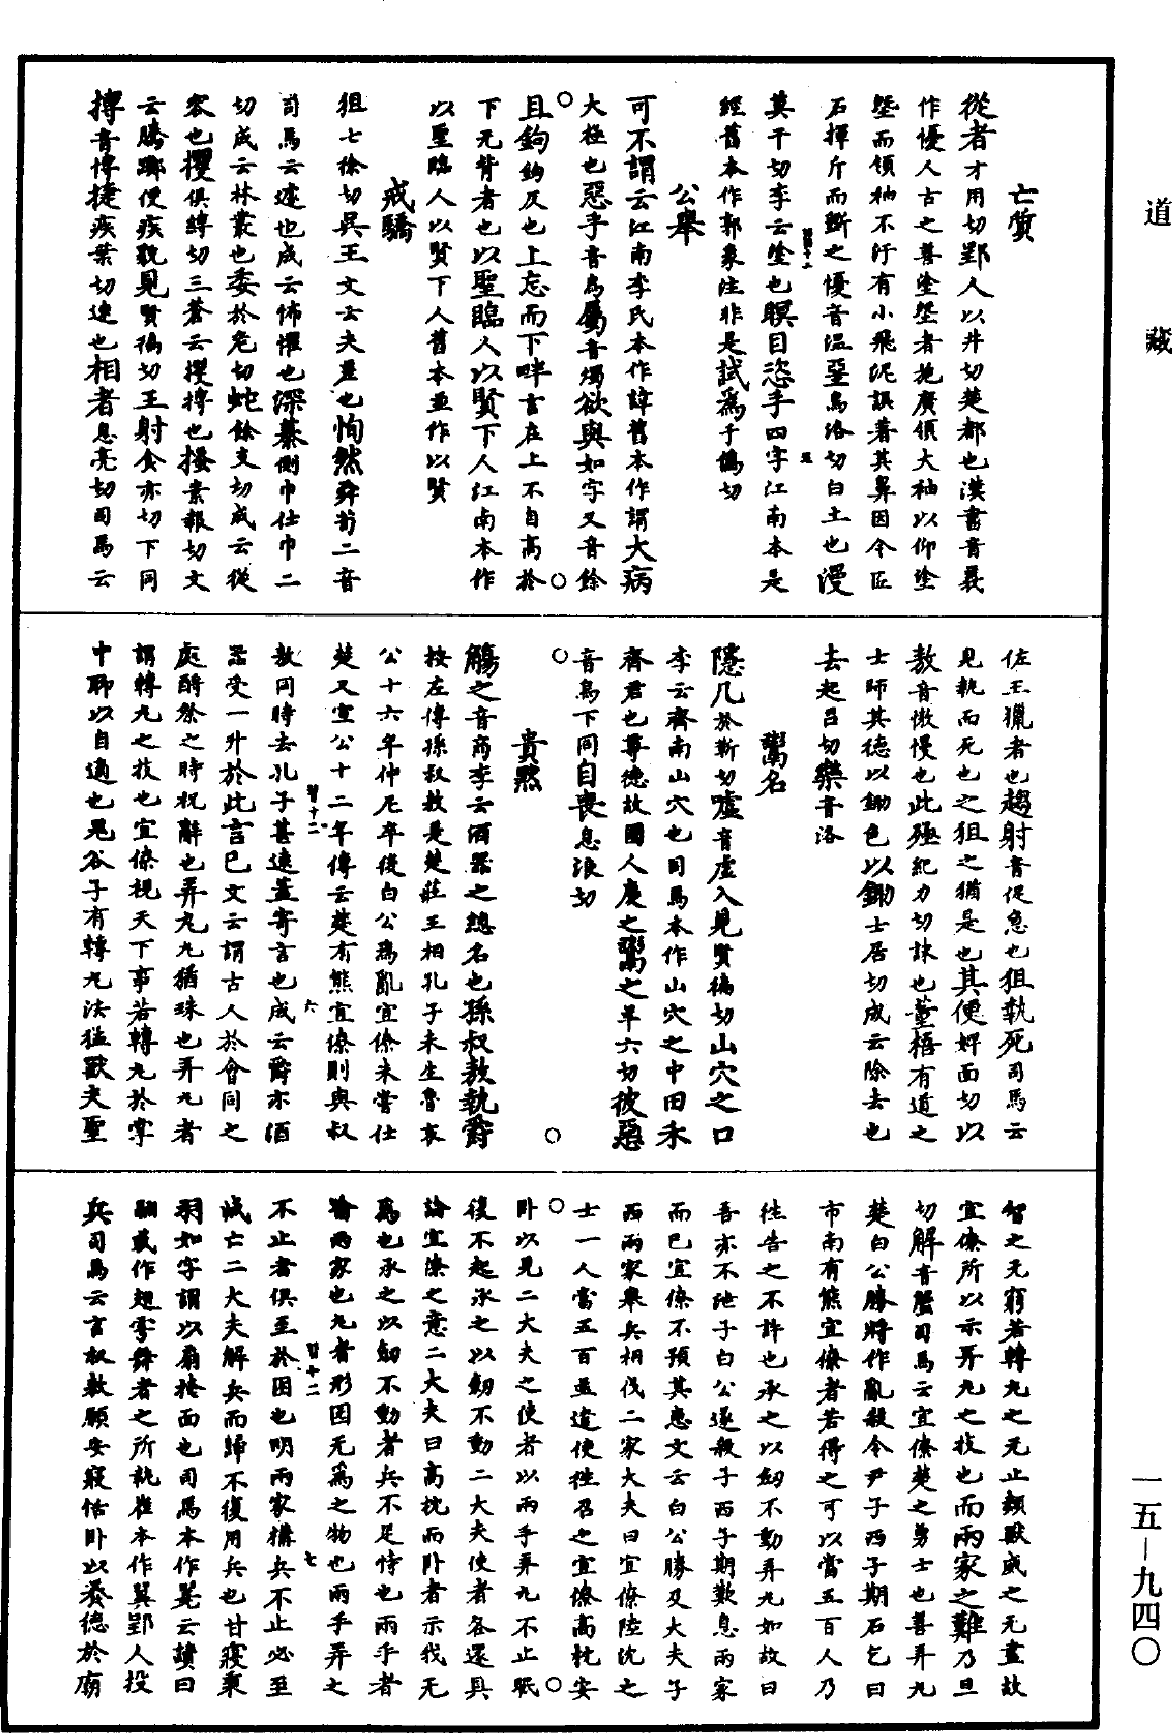 道藏
亡質
從者才用切郢人以井切楚都也漢書音義
作懮人古之善塗塈者施廣領大袖以仰塗
塈而領袖不汙有小飛泥誤著其鼻因令匠
石揮斤而斷之懮音溫堊烏洛切白土也漫
莫干切李云塗也瞑目恣手四字江南本是
經舊本作郭象注非是試為于僞切
公舉
可不謂云江南李氏本作諱舊本作謂大病
大極也惡乎音烏屬音燭欲與如字又音餘
且鉤鉤反也上忘而下畔言在上不自高於
下无背者也以聖臨人以賢下人江南本作
以聖臨人以賢下人舊本並作以賢
戒驕
狙七徐切吳王文云夫差也恂然舜荀二音
司馬云遽也成云怖懼也深蓁側巾仕巾二
切成云林叢也委於危切蛇餘支切成云從
容也攫俱縛切三蒼云攫搏也搔素報切文
云騰躑便疾貌見賢徧切王射食亦切下同
搏音博捷疾葉切速也相者息亮切司馬云
佐王獵者也趨射音促急也狙執死司馬云
見執而死也之狙之猶是也其便婢面切以
敖音傲慢也此殛紀力切誅也董梧有道之
士師其德以鋤色以鋤士居切成云除去也
去起呂切樂音洛
鬻名
隱几於靳切噓音虛入見賢徧切山穴之口
李云齊南山穴也司馬本作山穴之中田禾
齊君也尊德故國人慶之鬻之羊六切彼惡
音烏下同自喪息浪切
貴默
觴之音商李云酒器之總名也孫叔敖執爵
按左傳孫叔敖是楚莊王相孔子未生魯哀
公十六年仲尼卒後白公為亂宜僚未嘗仕
楚又宣公十二年傳云楚有熊宜僚則與叔
敖同時去孔子甚遠蓋寄言也成云爵亦酒
器受一升於此言已文云謂古人於會同之
處酹祭之時祝辭也弄丸丸猶珠也弄丸者
謂轉丸之技也宜僚視天下事若轉丸於掌
中聊以自適也鬼谷子有轉丸法猛獸夫聖
智之无窮若轉丸之无止類獸威之无盡故
宜僚所以示弄丸之技也而兩家之難乃旦
切解音蟹司馬云宜僚楚之勇士也善弄丸
楚白公勝將作亂殺令尹子西子期石乞曰
市南有熊宜僚者若得之可以當五百人乃
往告之不許也承之以劒不動弄丸如故曰
吾亦不泄子白公遂殺子西子期歎息兩家
而已宜僚不預其患文云白公勝及大夫子
西兩家舉兵相伐二家大夫曰宜僚陸沈之
士一人當五百並遣使往召之宜僚高枕安
臥以見二大夫之使者以兩手弄丸不止眠
後不起承之以劒不動二大夫使者各還具
論宜僚之意二大夫曰高枕而臥者示我无
為也承之以劒不動者兵不足恃也兩手者
喻兩家也丸者形因无為之物也兩手弄之
不止者俱至於困也明兩家構兵不止必至
滅亡二大夫解兵而歸不復用兵也甘寢秉
羽如字謂以扇掩面也司馬本作翣云讀曰
翿或作翅雩舞者之所執崔本作翼郢人投
兵司馬云言叔敖願安寢恬臥以養德於廟
一五—九四〇